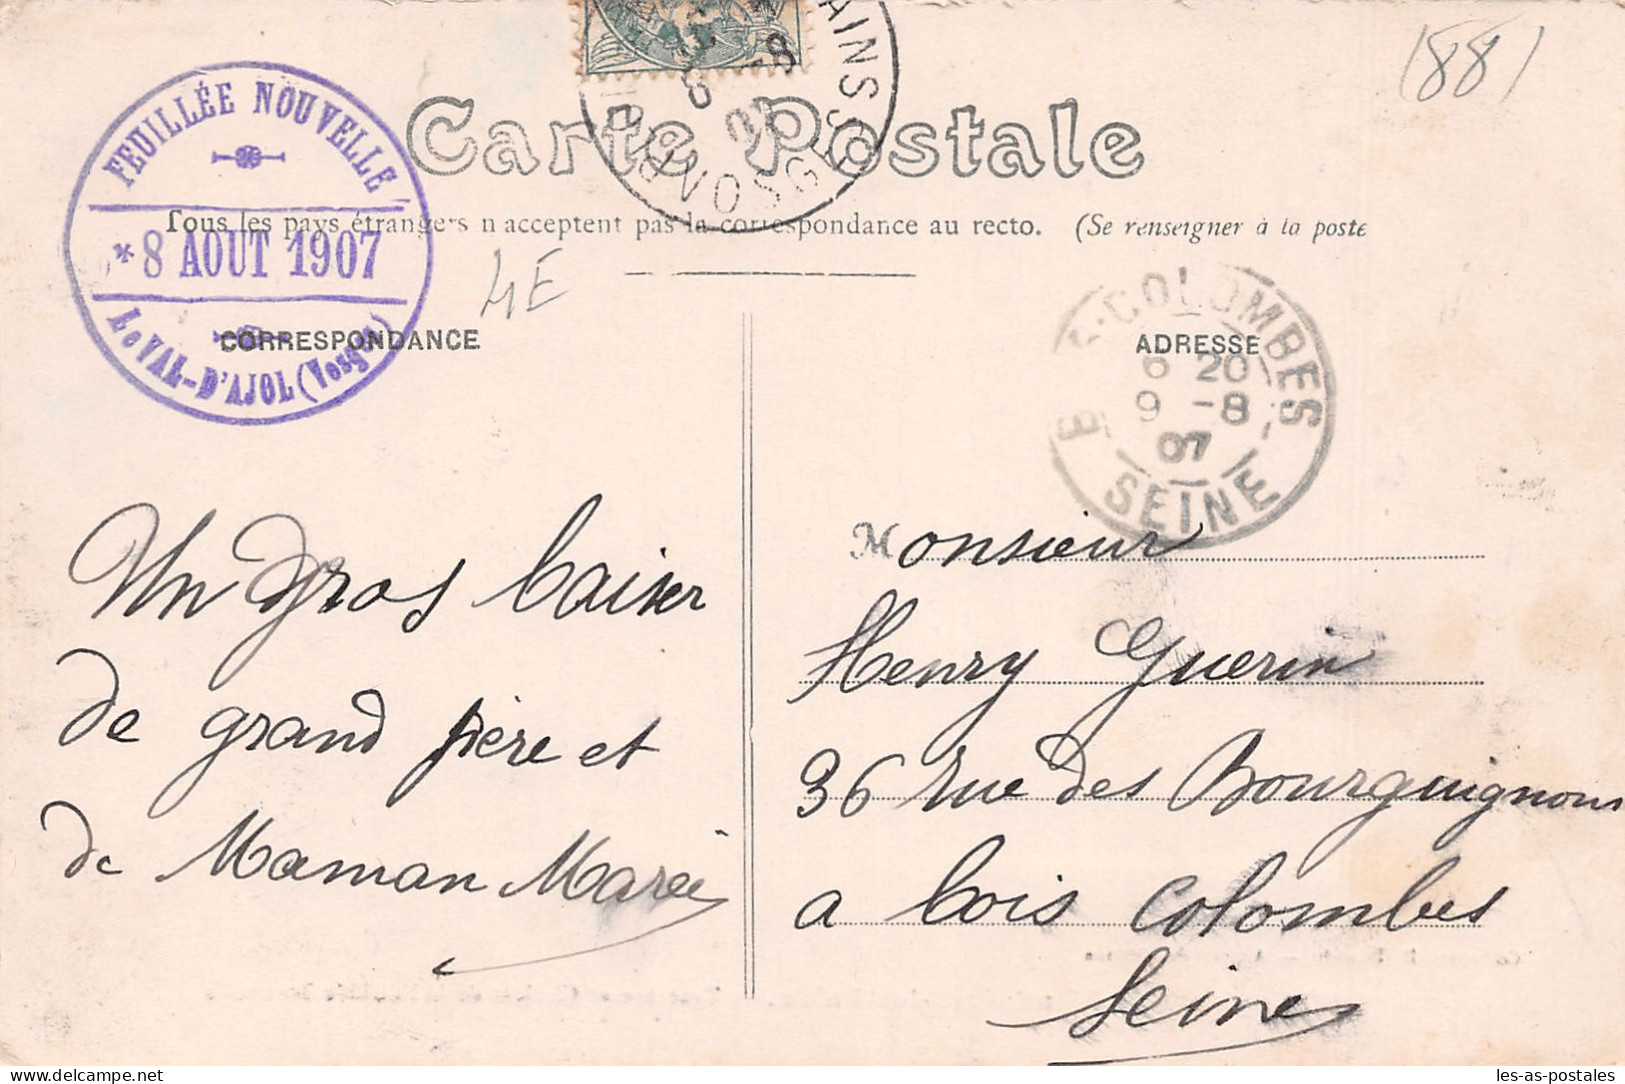 FEUILLÉE NOUVELLE
* 8 AOUT 1907
Le VAL-D'AJOL (Vosges)
VOSGES
(88)
Carte Postale
Tous les pays étrangers n'acceptent pas la correspondance au recto. (Se renseigner à la poste
4E
CORRESPONDANCE
ADRESSE
COLOMBES
6 20
9 -8
07
SEINE
Un gros baiser
de grand père et
de Maman Marie
Monsieur
Henry Guerin
36 rue des Bourguignons
a bois Colombes
Seine
les-as-postales - Delcampe.net